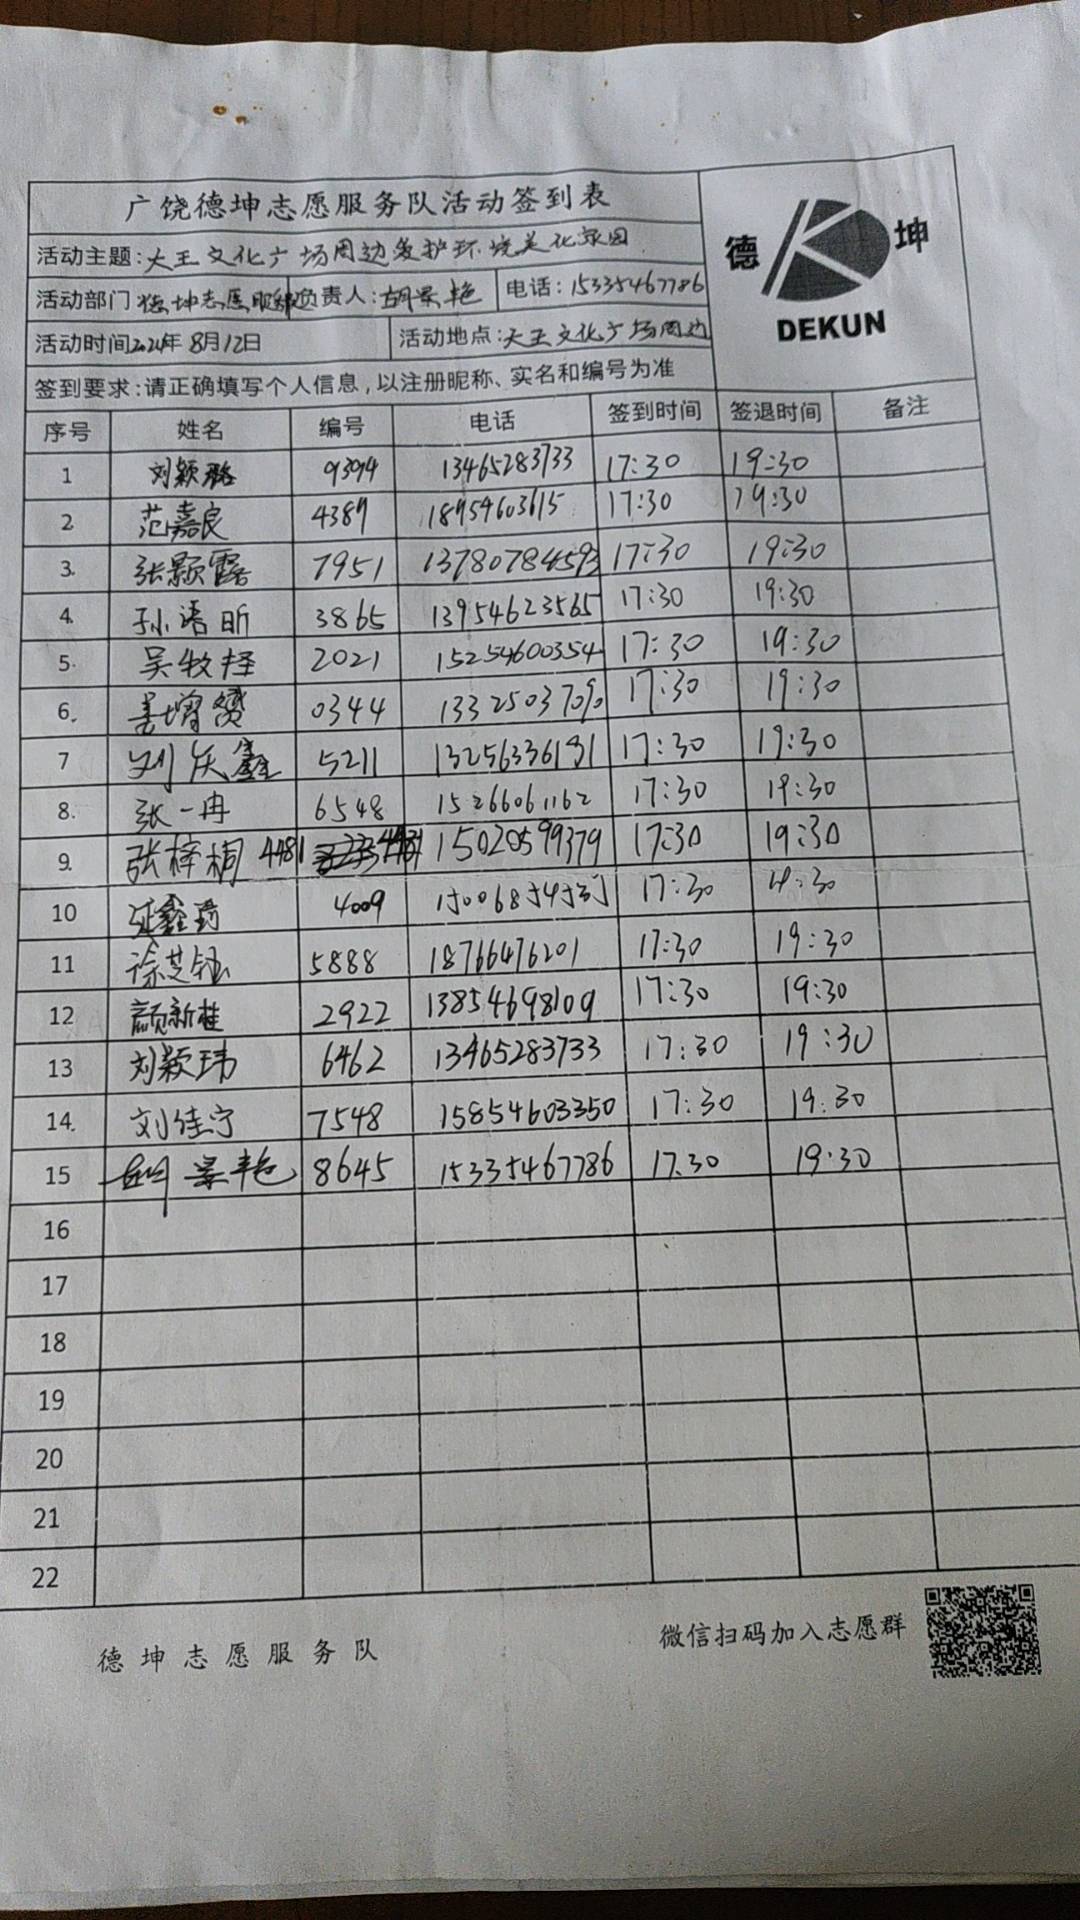 广饶德坤志愿服务队活动签到表
德 坤
DEKUN
活动主题:大王文化广场周边爱护环境美化家园
活动部门 德坤志愿服务队 负责人:胡景艳 电话:15335467786
活动时间2024年8月12日 活动地点:大王文化广场周边
签到要求:请正确填写个人信息,以注册昵称、实名和编号为准
序号 姓名 编号 电话 签到时间 签退时间 备注
1 刘颖璐 9394 13465283733 17:30 19:30
2 范嘉良 4389 18954603615 17:30 19:30
3. 张颢露 7951 13780784593 17:30 19:30
4. 孙语昕 3865 13954623565 17:30 19:30
5. 吴牧择 2021 15254600354 17:30 19:30
6. 0344 13325037090 17:30 19:30
7 刘庆鑫 5211 13256336191 17:30 19:30
8. 张一冉 6548 15266061162 17:30 19:30
9. 张梓桐 4481 15020599379 17:30 19:30
10 4009 17:30 19:30
11 徐芝钰 5888 18766476201 17:30 19:30
12 颜新桂 2922 13854698109 17:30 19:30
13 刘颖玮 6462 13465283733 17:30 19:30
14. 刘佳宁 7548 15854603350 17:30 19:30
15 胡景艳 8645 15335467786 17.30 19:30
16
17
18
19
20
21
22
德坤志愿服务队
微信扫码加入志愿群